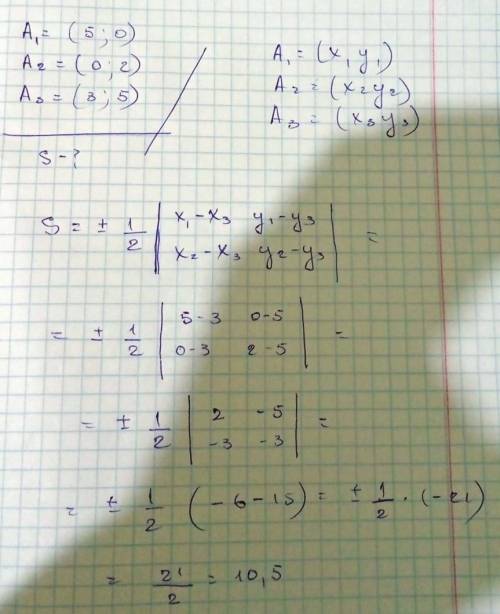 A₁ = (5 ; 0)
A₂ = (0 ; 2)
A₃ = (3 ; 5)
S - ?
A₁ = (x₁ y₁)
A₂ = (x₂ y₂)
A₃ = (x₃ y₃)
S = ± 1/2 | x₁-x₃ y₁-y₃
x₂-x₃ y₂-y₃ | =
= ± 1/2 | 5-3 0-5
0-3 2-5 | =
= ± 1/2 | 2 -5
-3 -3 | =
= ± 1/2 (-6-15) = ± 1/2 · (-21)
= 21/2 = 10,5